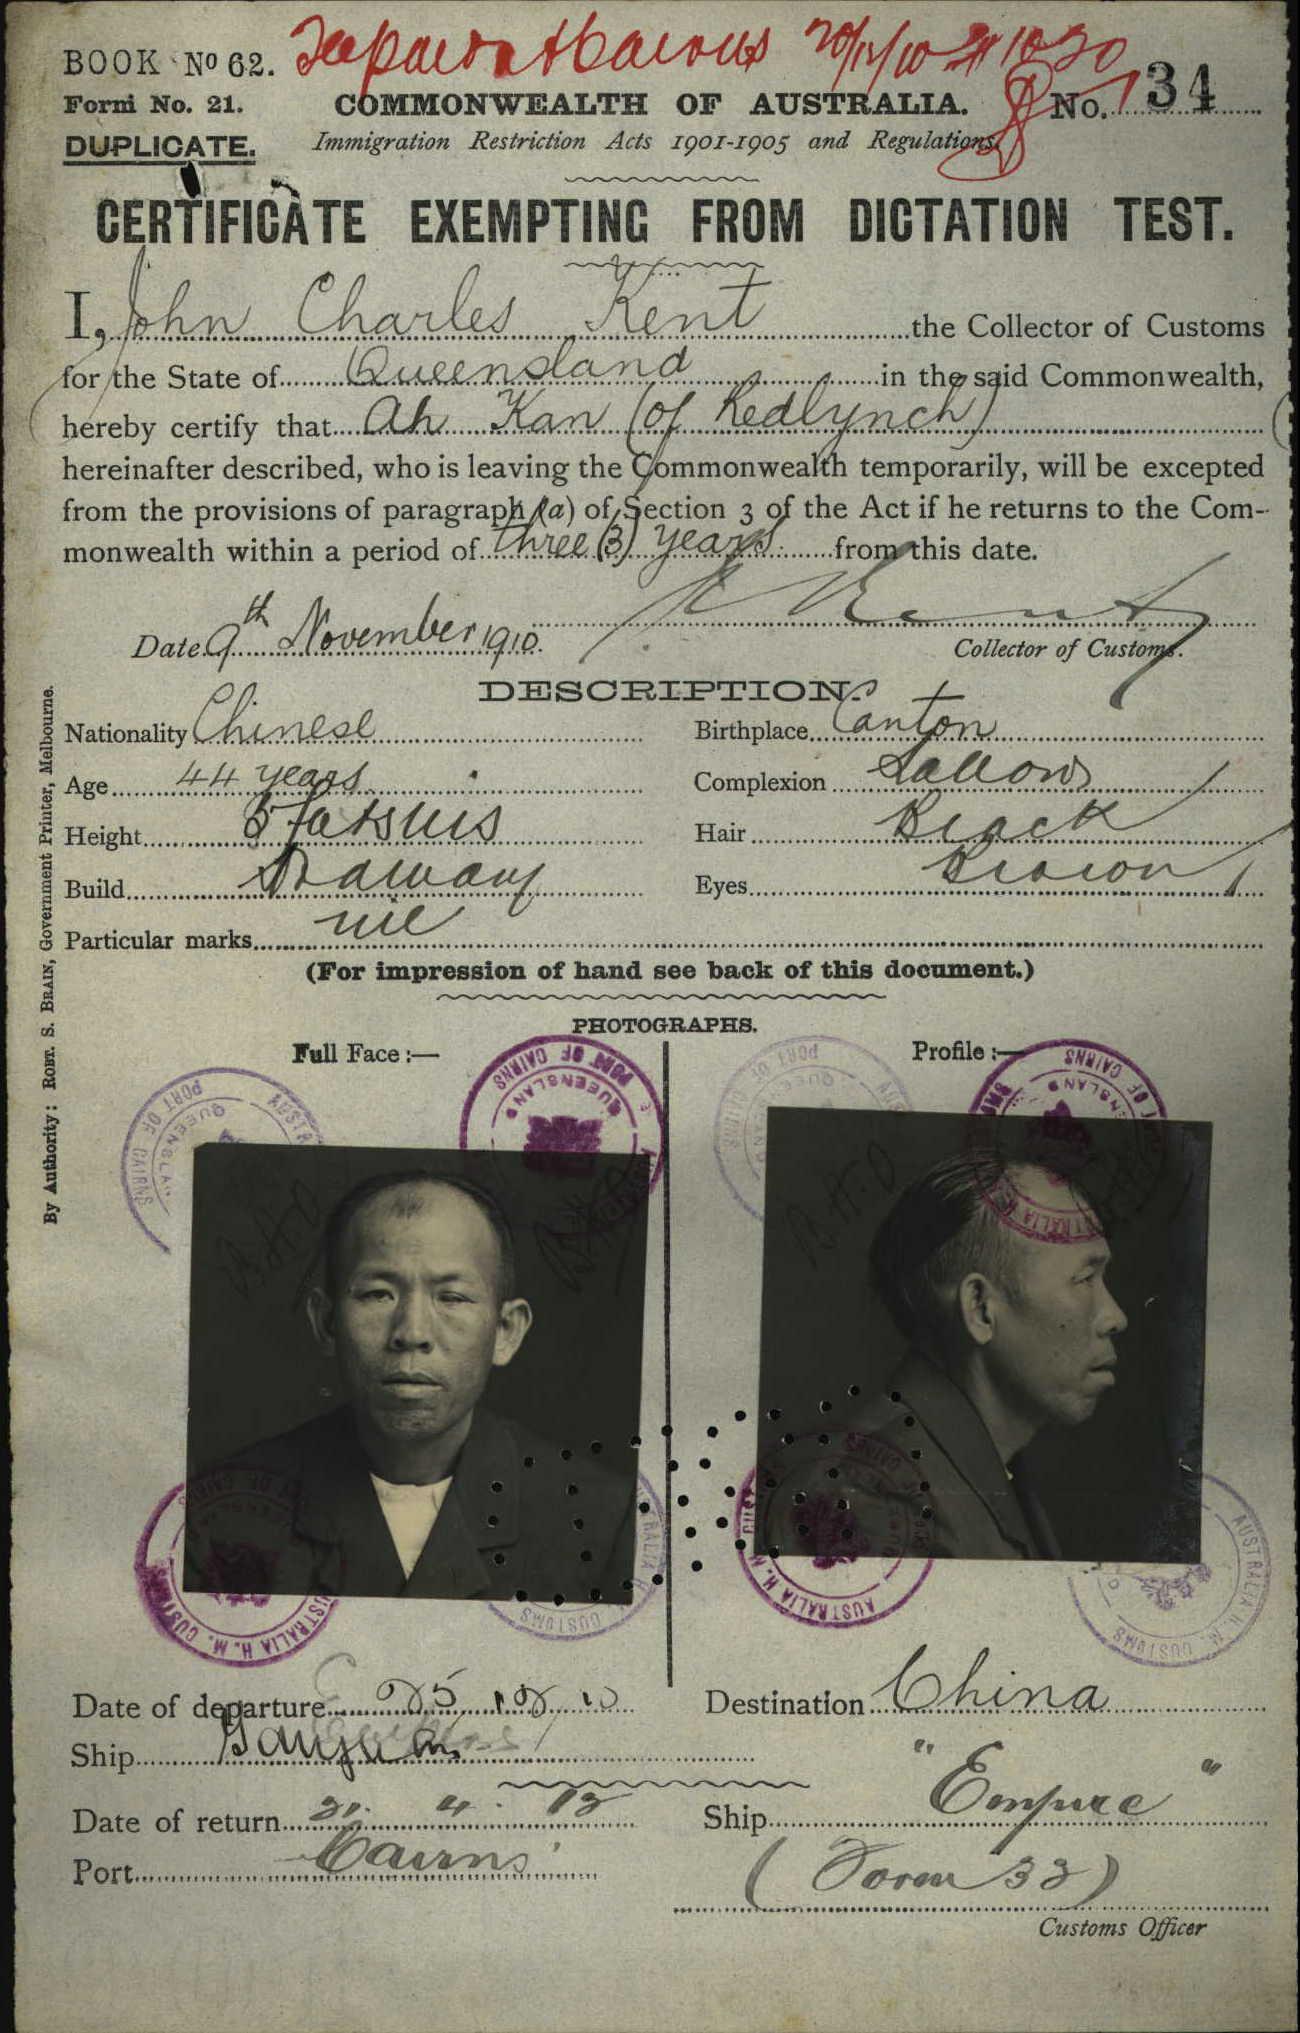 BOOK No 62.
20/12/10
Form No. 21.
COMMONWEALTH OF AUSTRALIA.
No. 34
DUPLICATE.
Immigration Restriction Acts 1901-1905 and Regulations.
CERTIFICATE EXEMPTING FROM DICTATION TEST.
I, John Charles Kent the Collector of Customs
for the State of Queensland in the said Commonwealth,
hereby certify that Ah Kan (of Redlynch)
hereinafter described, who is leaving the Commonwealth temporarily, will be excepted
from the provisions of paragraph (a) of Section 3 of the Act if he returns to the Com-
monwealth within a period of three (3) years from this date.
Date 9th November 1910.
Collector of Customs.
DESCRIPTION.
Nationality Chinese
Birthplace Canton
Age 44 years
Complexion Sallow
Height
Hair Black
Build
Eyes Brown
Particular marks nil
(For impression of hand see back of this document.)
PHOTOGRAPHS.
Full Face :—
Profile :—
By Authority: ROBT. S. BRAIN, Government Printer, Melbourne.
PORT OF CAIRNS
QUEENSLAND
AUSTRALIA H. M. CUSTOMS
Date of departure 25 12 10
Destination China
Ship
Date of return 4. 13
Ship "Empire"
Port Cairns
(Form 32)
Customs Officer